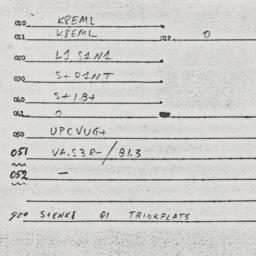 010 KREML
011 KREML 012 0
020 L1S1N1
030 S+R1NT
060 S+1B+
061 0
050 UPCVUG+
051 VA.S3R-/31.3
052 -
900 S+ENKS 01 TRINKPLATS